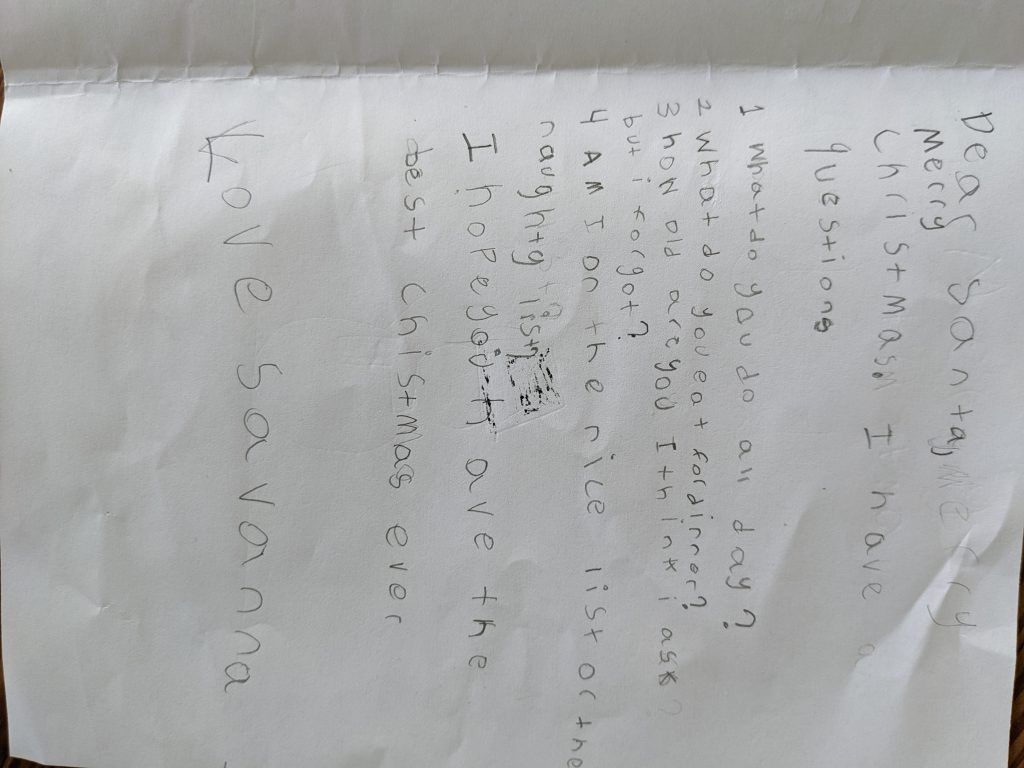 Dear Santa, Merry
Merry
Christmas. I have a
questions
1 what do you do all day?
2 what do you eat for dinner?
3 how old are you I think i ask?
but i forgot?
4 AM I on the nice list or the
naughty list?
I hope you have the
best chistmas ever
Love Savanna